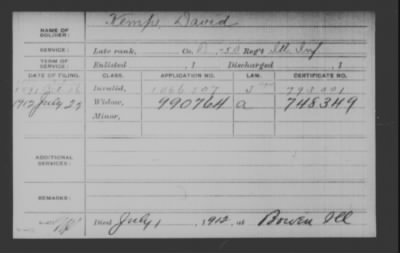 NAME OF SOLDIER: Kemps, David
SERVICE: Late rank, Co. B, 50 Reg't Ill Inf
TERM OF SERVICE: Enlisted , 1 Discharged , 1
DATE OF FILING. CLASS. APPLICATION NO. LAW. CERTIFICATE NO.
Invalid,
1912 July 23 Widow, 990764 a 748349
Minor,
ADDITIONAL SERVICES:
REMARKS:
Died July 1, 1912, at Bowen Ill